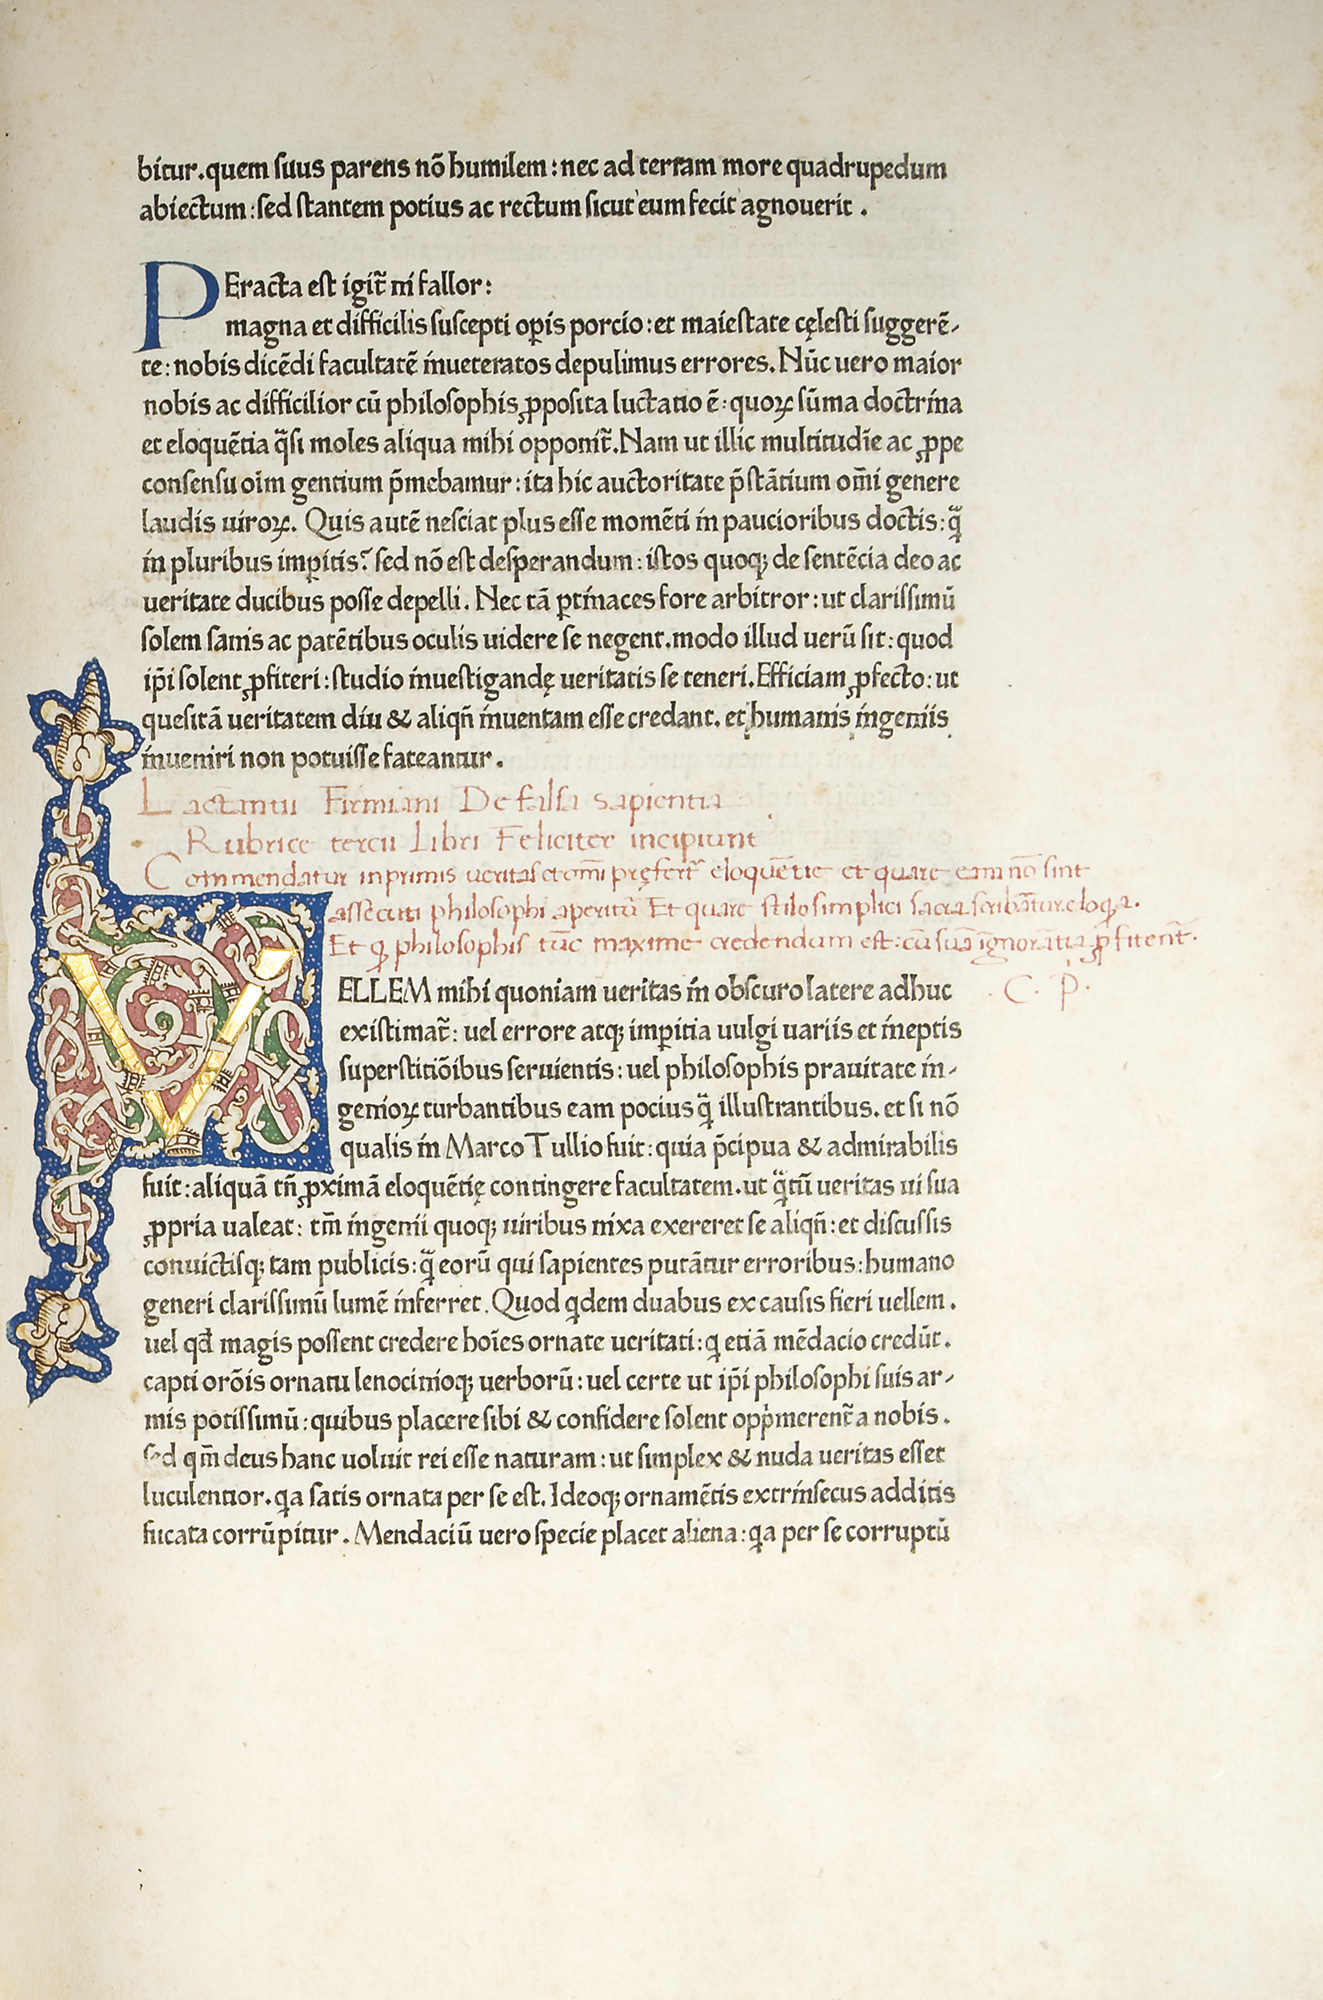 bitur.quem suus parens nō humilem:nec ad terram more quadrupedum
abiectum:sed stantem potius ac rectum sicut eum fecit agnouerit.
PEracta est igit̃ ni fallor:
magna et difficilis suscepti oꝑis porcio:et maiestate cęlesti suggerē-
te:nobis dicēdi facultatē inueteratos depulimus errores.Nūc uero maior
nobis ac difficilior cū philosophis ꝓposita luctatio ē:quoꝝ sūma doctrina
et eloquētia q̄si moles aliqua mihi opponit̃.Nam ut illic multitudīe ac ꝓpe
consensu oīm gentium p̄mebamur:ita hic auctoritate p̄stātium om̄i genere
laudis uiroꝝ. Quis autē nesciat plus esse momēti in paucioribus doctis:q̄
in pluribus imꝑitis? sed nō est desperandum:istos quoqꝫ de sentēcia deo ac
ueritate ducibus posse depelli. Nec tā ꝑtinaces fore arbitror:ut clarissimū
solem sanis ac patētibus oculis uidere se negent.modo illud uerū sit:quod
ip̄i solent ꝓfiteri:studio inuestigandę ueritatis se teneri.Efficiam ꝓfecto:ut
quesitā ueritatem diu & aliqn̄ inuentam esse credant. et humanis ingeniis
inueniri non potuisse fateantur.
Lactantii Firmiani De falsa sapientia
Rubrice tercii Libri Feliciter incipiunt
Commendatur inprimis ueritas et om̄i pręfert̃ eloquētie et quare eam nō sint
assecuti philosophi aperitū Et quare stilo simplici sacra scribātur eloqa.
Et ꝙ philosophis tūc maxime credendum est:cū suā ignorātiā ꝓfitent̃.
C. P.
VELLEM mihi quoniam ueritas in obscuro latere adhuc
existimat̃: uel errore atqꝫ imꝑitia uulgi uariis et ineptis
superstitiōibus seruientis:uel philosophis prauitate in-
genioꝝ turbantibus eam pocius q̄ illustrantibus. et si nō
qualis in Marco Tullio fuit:quia p̄cipua & admirabilis
fuit:aliquā tn̄ ꝓximā eloquētię contingere facultatem.ut q̄tū ueritas ui sua
ꝓpria ualeat: tm̄ ingenii quoqꝫ uiribus nixa exereret se aliqn̄:et discussis
conuictisqꝫ tam publicis:q̄ eorū qui sapientes putātur erroribus:humano
generi clarissimū lumē inferret. Quod qdem duabus ex causis fieri uellem.
uel qd̄ magis possent credere hoīes ornate ueritati:q etiā mēdacio credūt.
capti orōis ornatu lenocinioqꝫ uerborū:uel certe ut ip̄i philosophi suis ar-
mis potissimū:quibus placere sibi & confidere solent opp̄merent̃ a nobis.
sed qm̄ deus hanc uoluit rei esse naturam:ut simplex & nuda ueritas esset
luculentior.qa satis ornata per se est.Ideoqꝫ ornamētis extrinsecus additis
fucata corrūpitur. Mendaciū uero specie placet aliena:qa per se corruptū